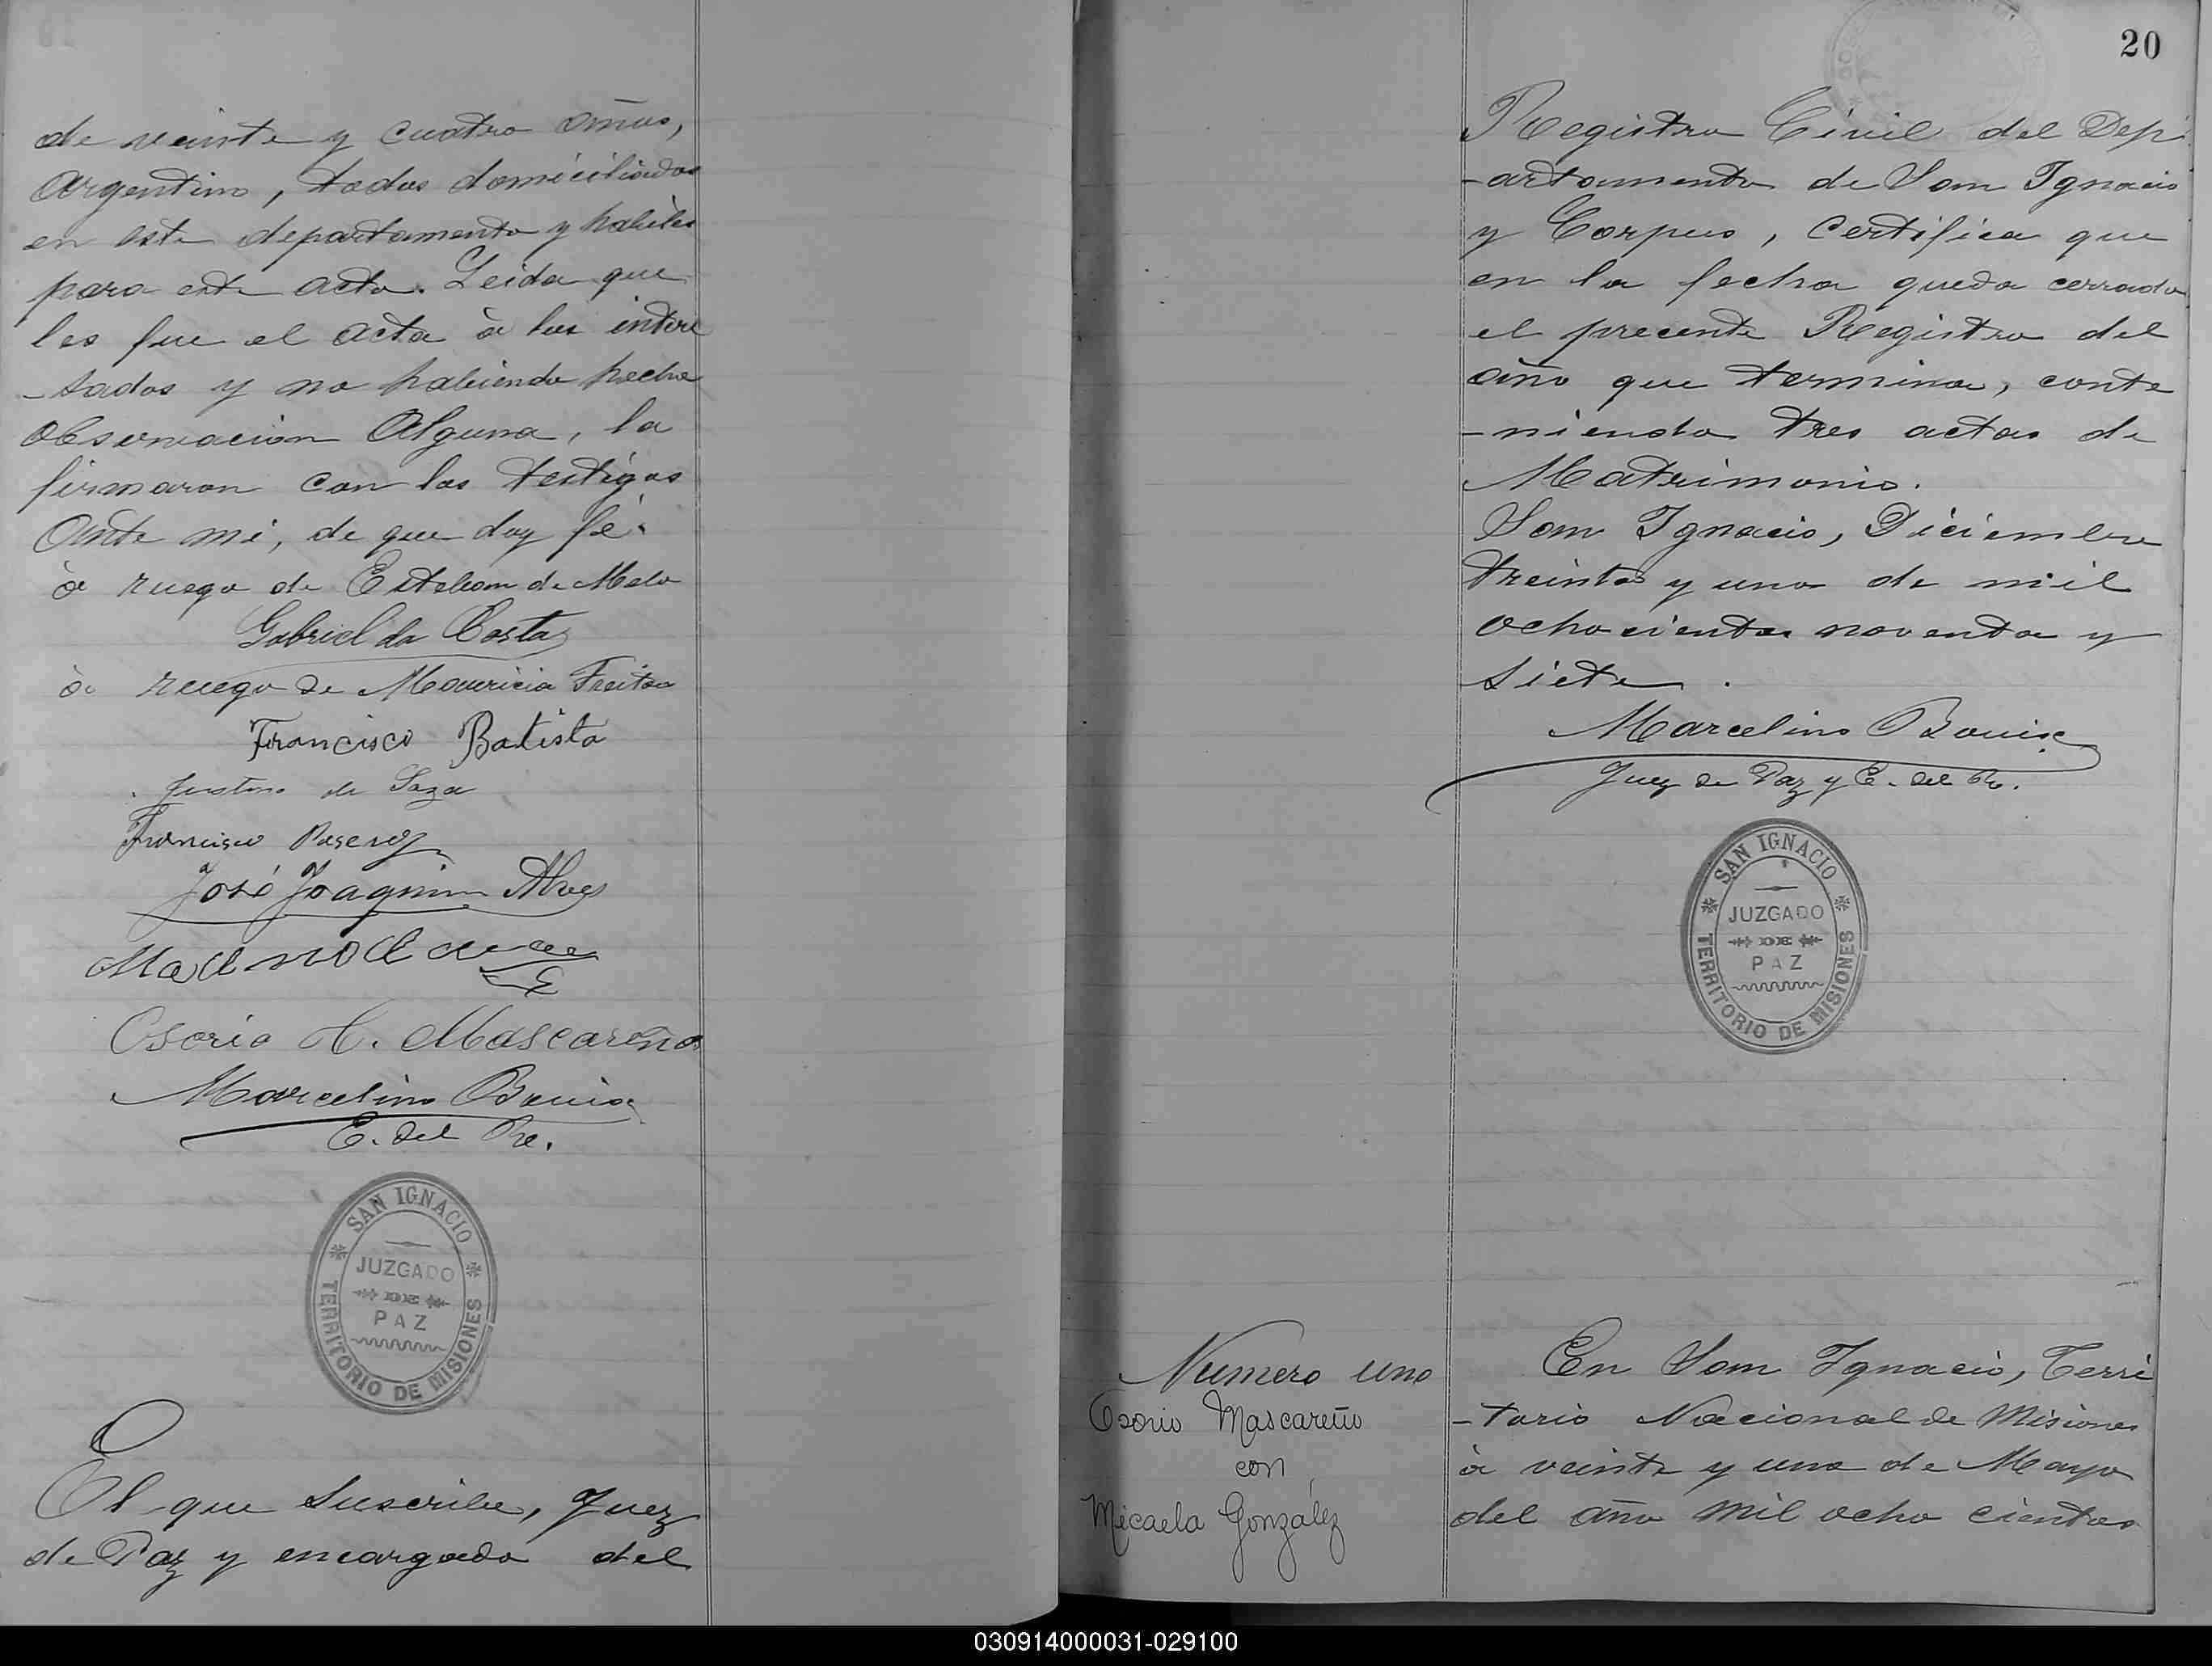 de veinte y cuatro años,
Argentino, todos domiciliados
en este departamento y habiles
para este acto. Leida que
les fue el acta à los intere
-sados y no habiendo hecho
observacion Alguna, la
firmaron con los testigos
Ante mi, de que doy fé.
à ruego de Esteban de Melo
Gabriel da Costa
à ruego de Mauricia Freitas
Francisco Batista
de
Francisco
José Joaquim Alves
Osorio Mascareño
Marcelino Bouix
E. del Re.
SAN IGNACIO
JUZGADO
DE
PAZ
TERRITORIO DE MISIONES
El que suscribe, Juez
de Paz y encargado del
20
Registro Civil del Dep
-artamento de San Ignacio
y Corpus, Certifica que
en la fecha queda cerrado
el precente Registro del
año que termina, conte
-niendo tres actas de
Matrimonio.
San Ignacio, Diciembre
treinta y uno de mil
ocho cientos noventa y
siete.
Marcelino Bouix
Juez de Paz y E. del Re.
SAN IGNACIO
JUZGADO
DE
PAZ
TERRITORIO DE MISIONES
Numero uno
Osorio Mascareño
con
Micaela González
En San Ignacio, Terri
-torio Nacional de Misiones
à veinte y uno de Mayo
del año mil ocho cientos
030914000031-029100